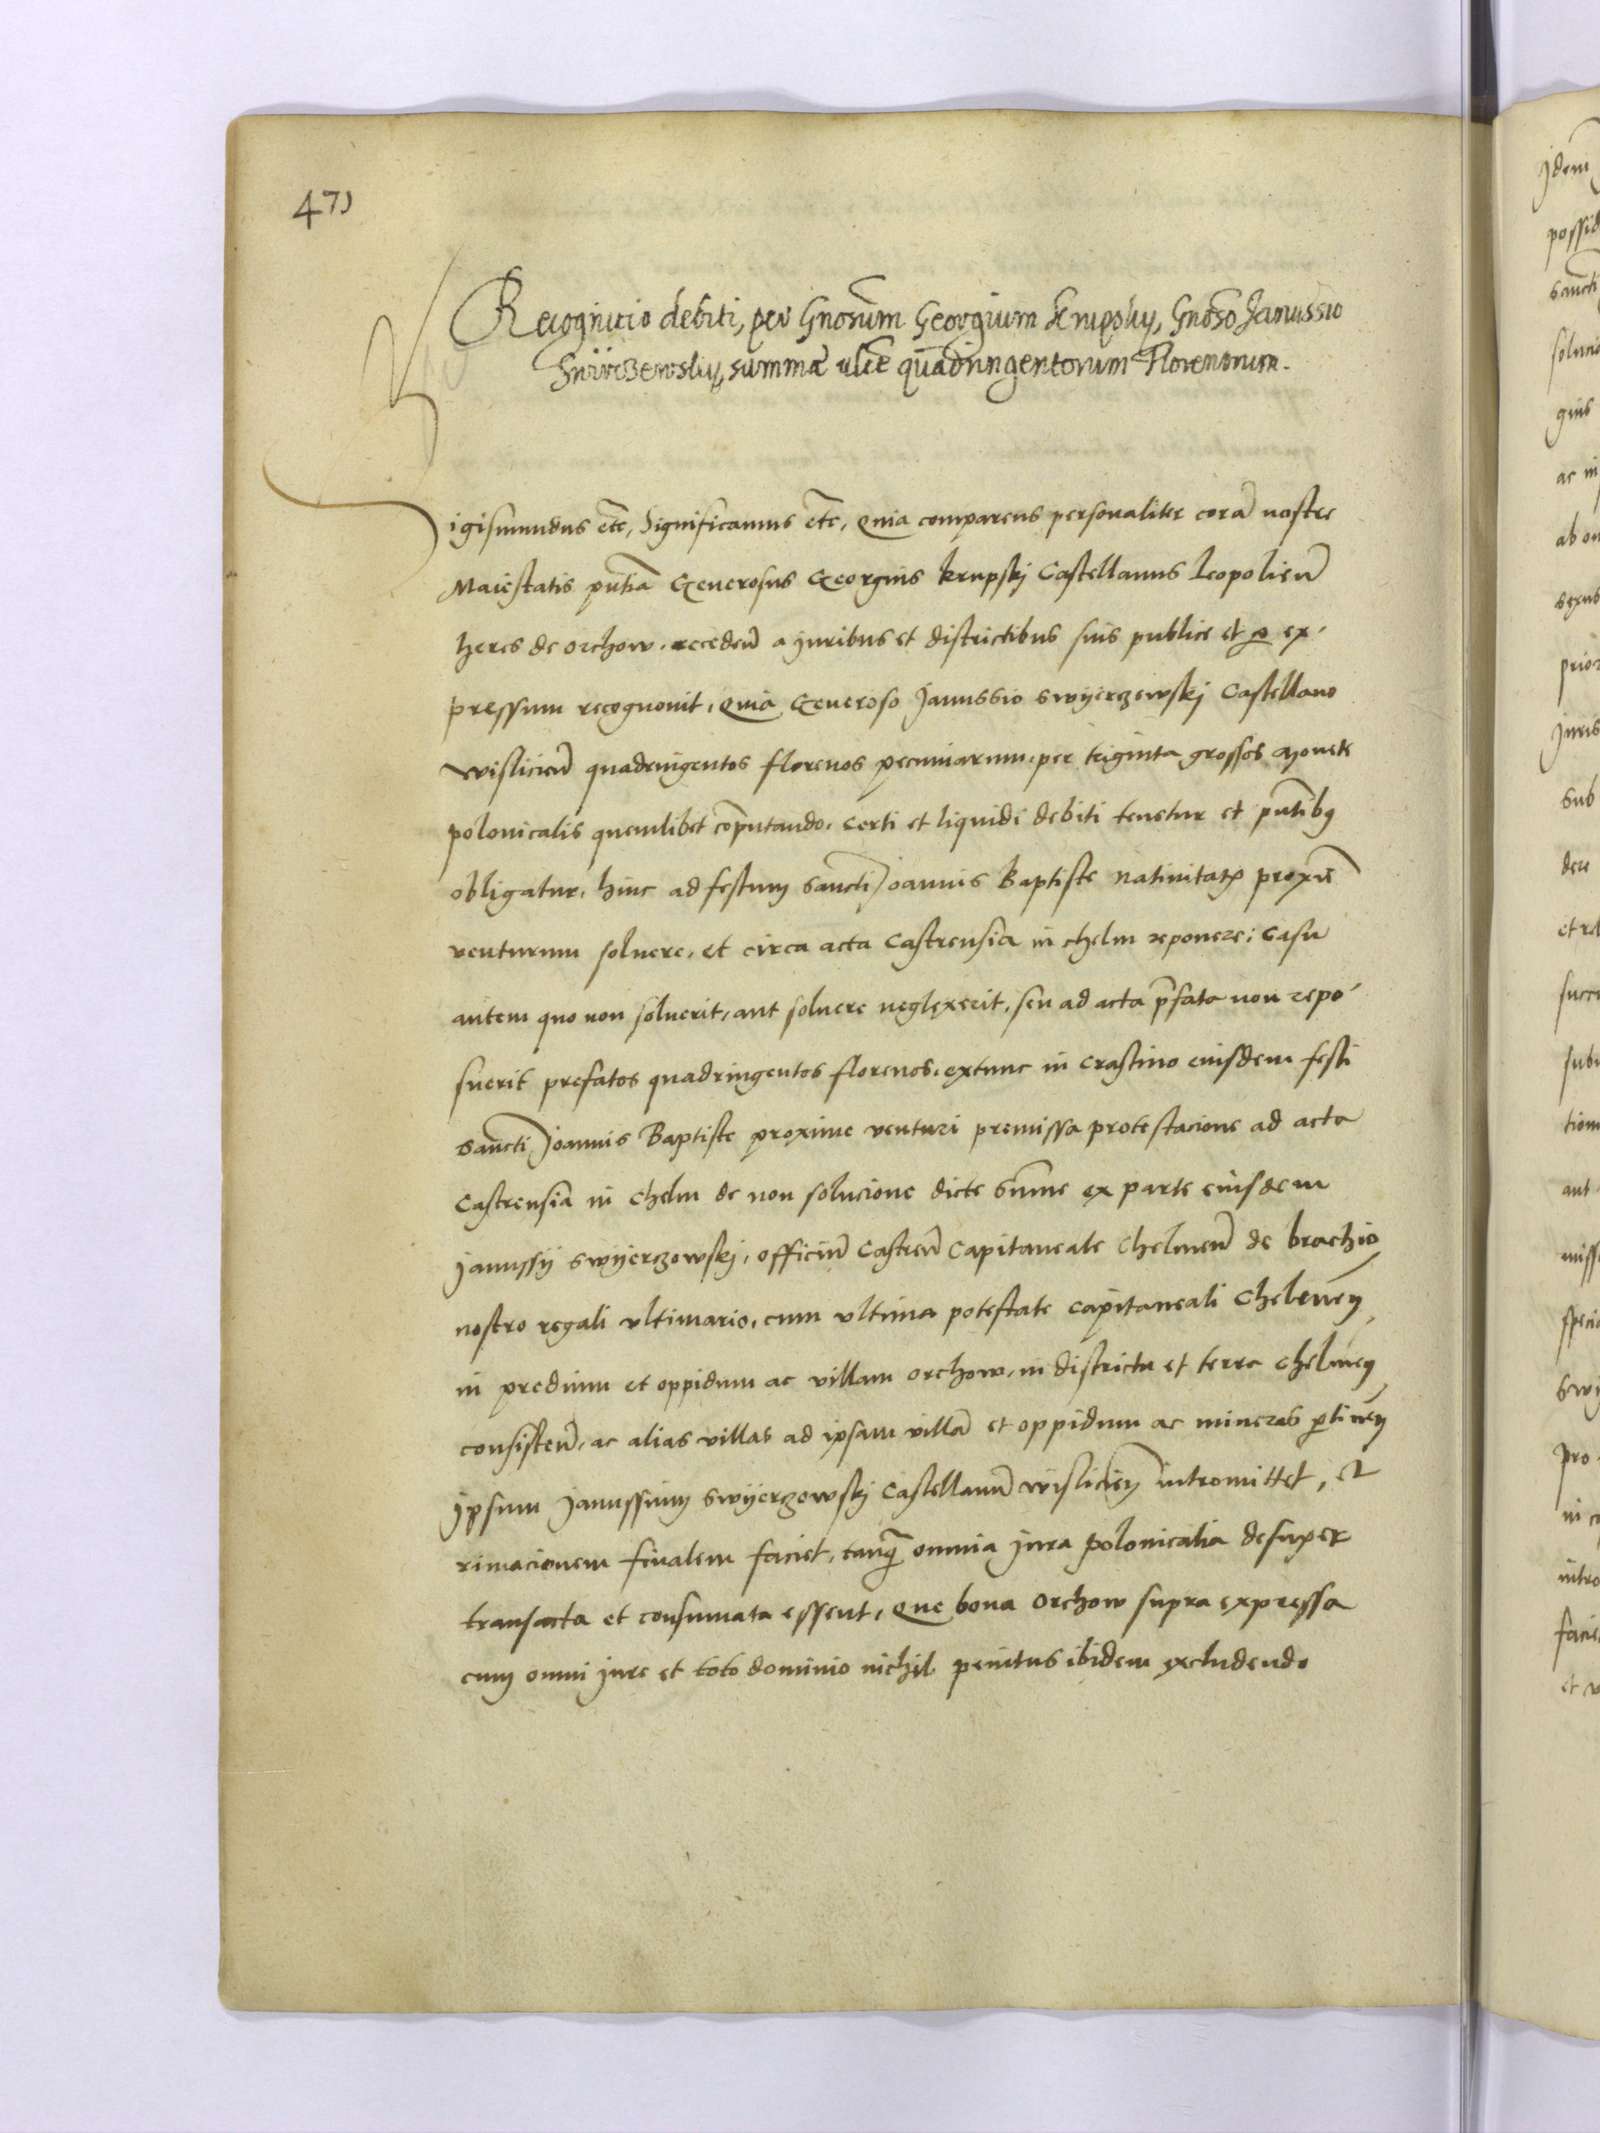 471
Recognicio debiti, per Gnosum Georgium Krupsky, Gnoso Janussio
Swierzewsky, summe quadringentorum Florenorum.
Sigismundus etc, Significamus etc, Quia comparens personaliter corã nostre
Maiestatis pñtia Generosus Georgius krupskj Castellanus Leopolien̄
heres de orchow. receden̄ a juribus et districtibus suis publice et p ex-
pressum recognouit, Quia Generoso Janussio swyerczewskj Castellano
wislicien̄ quadringentos florenos pecuniarum. per triginta grossos monete
polonicalis quemlibet cõputando. certi et liquidi debiti tenetur et pñtibus
obligatur. hinc ad festum sancti Joannis Baptiste natiuitatis proxie
venturum soluere. et circa acta castrensia in chelm reponere; Casu
autem quo non soluerit, aut soluere neglexerit, seu ad acta p̄fata non repo-
suerit prefatos quadringentos florenos. extunc in crastino eiusdem festi
sancti Joannis Baptiste proxime venturi premissa protestacione ad acta
Castrensia in chelm de non solucione dicte sum̄e ex parte eiusdem
Janussij swyerczowskj, officiu̅ castren̄ capitaneale chelmen̄ de brachio
nostro regali vltimario. cum vltima potestate capitaneali Chelmen̄
in predium et oppidum ac villam orchow. in districtu et terra chelmen̄
consisten̄. ac alias villas ad ipsam villã et oppidum ac mineras ptinen̄
ipsum Janussium swyerczowskj Castellanu̅ wislicien̄ intromittet, et
rimacionem finalem faciet, tanq̃ omnia jura polonicalia desuper
transacta et consumata essent, Que bona orchow supra expressa
cum omni jure et toto dominio nichil penitus ibidem excludendo